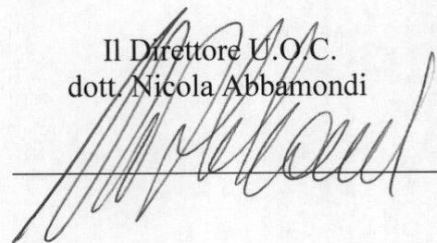 Il Direttore U.O.C.
dott. Nicola Abbamondi